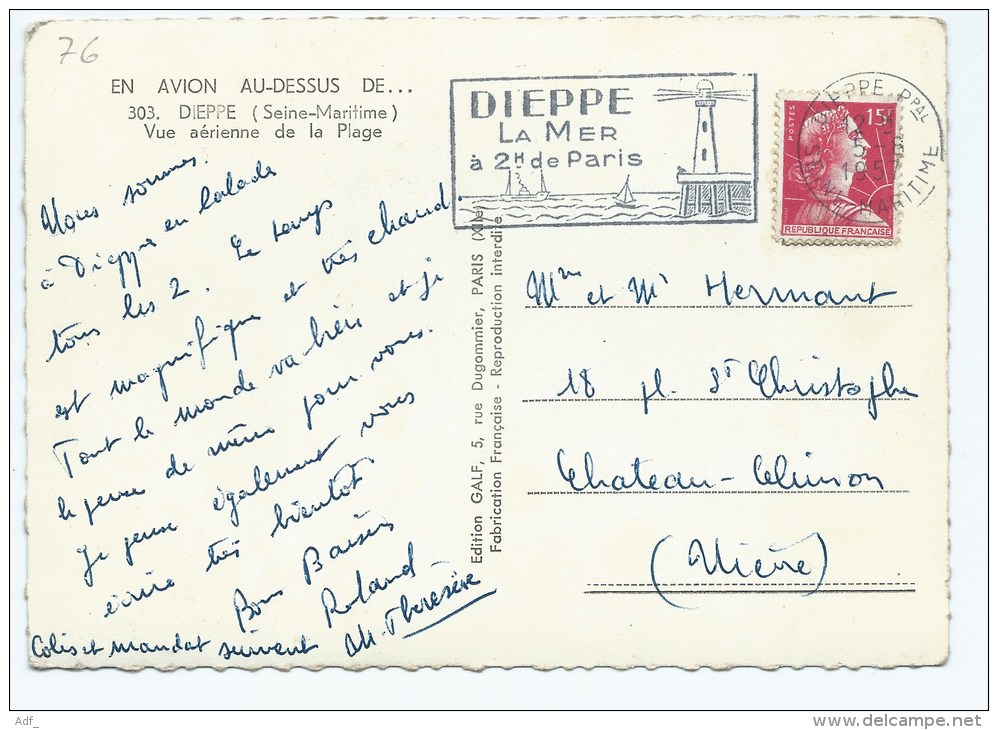 76
EN AVION AU-DESSUS DE...
303. DIEPPE (Seine-Maritime)
Vue aérienne de la Plage
DIEPPE
LA MER
à 2H de Paris
DIEPPE PPAL
12 H
5-8
1957
SNE MARITIME
POSTES
15F
REPUBLIQUE FRANÇAISE
Nous sommes
à Dieppe en balade
tous les 2. Le temps
est magnifique et très chaud
Tout le monde va bien et j
le pense de même pour vous.
Je pense également vous
écrire très bientôt.
Bons Baisers
Roland
M. Therésère
Colis et mandat suivent
Edition GALF, 5, rue Dugommier, PARIS (XIIe)
Fabrication Française - Reproduction interdite
Mme et Mr Hermant
18 pl. St Christophe
Chateau-Chinon
(Nièvre)
Adf_
delcampe.net